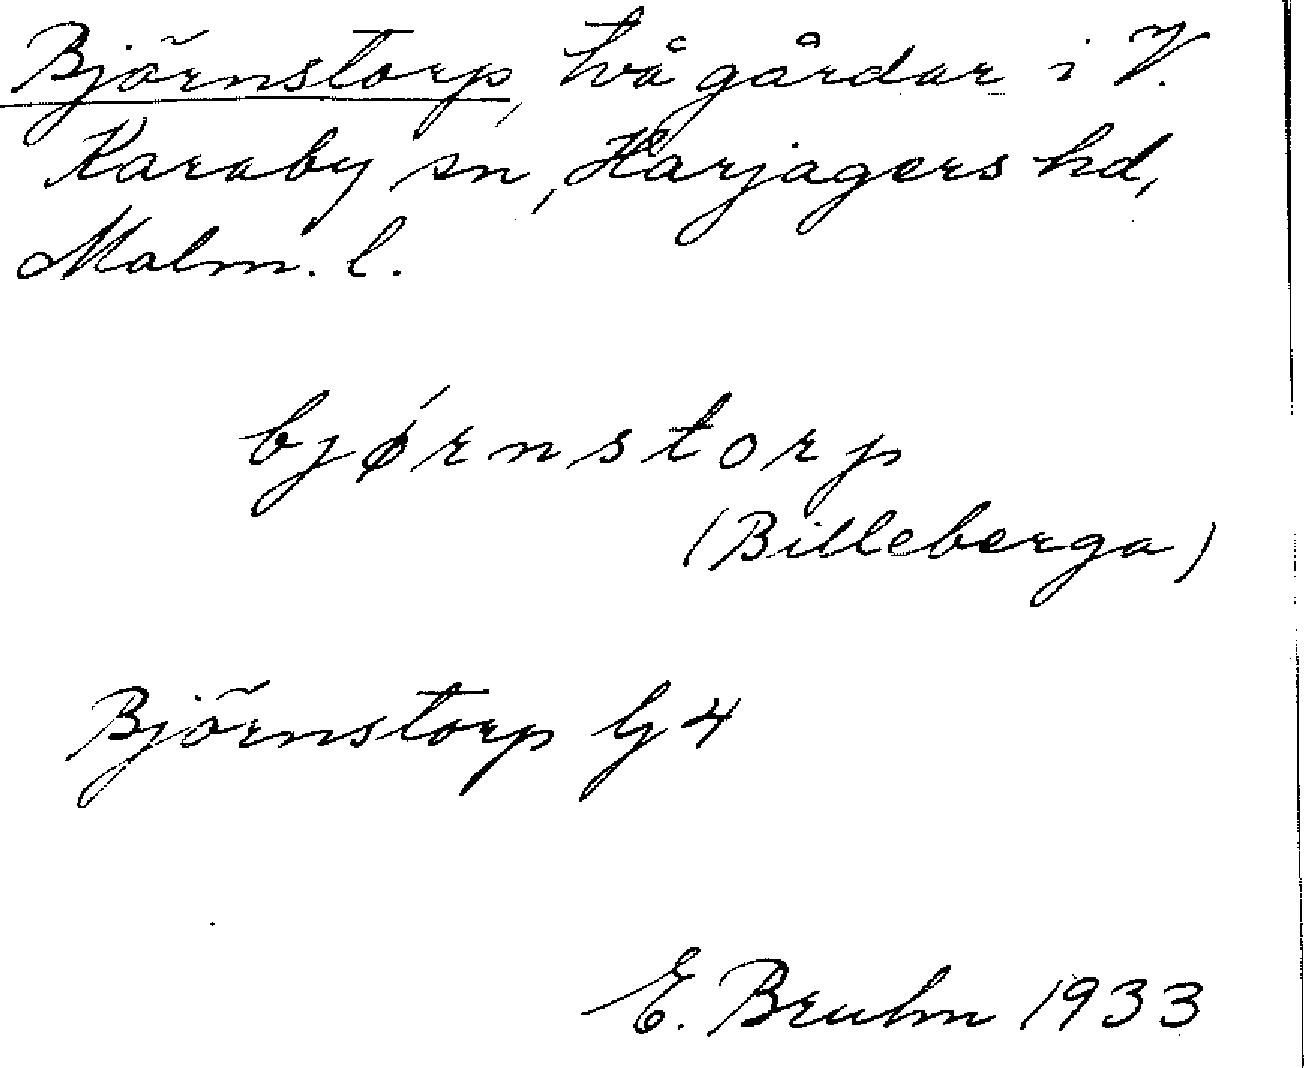 Björnstorp, två gårdar i V.
Karaby sn, Harjagers hd,
Malm. l.
bjǿrnstorp
(Billeberga)
Björnstorp G4
E. Bruhn 1933